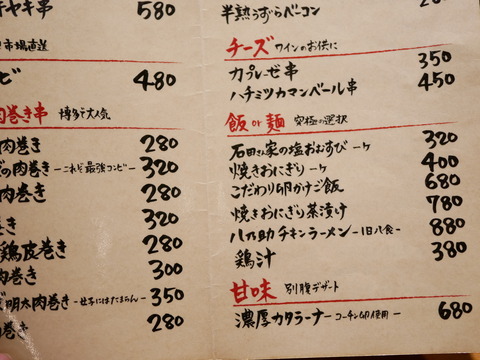 580
市場直送
480
肉巻き串 博多で大人気
肉巻き 280
の肉巻き -これぞ最強コンビ- 320
肉巻き 280
巻き 320
鶏皮巻き 280
肉巻き 300
明太肉巻き -女子にはたまらん- 350
巻き 280
半熟うずらベーコン
チーズ ワインのお供に
カプレーゼ串 350
ハチミツカマンベール串 450
飯or麺 究極の選択
石田さん家の塩おむすび 一ケ 320
焼きおにぎり 一ケ 400
こだわり卵かけご飯 680
焼きおにぎり茶漬け 780
八乃助チキンラーメン -1日八食- 880
鶏汁 380
甘味 別腹デザート
濃厚カタラーナ -コーチン卵使用- 680